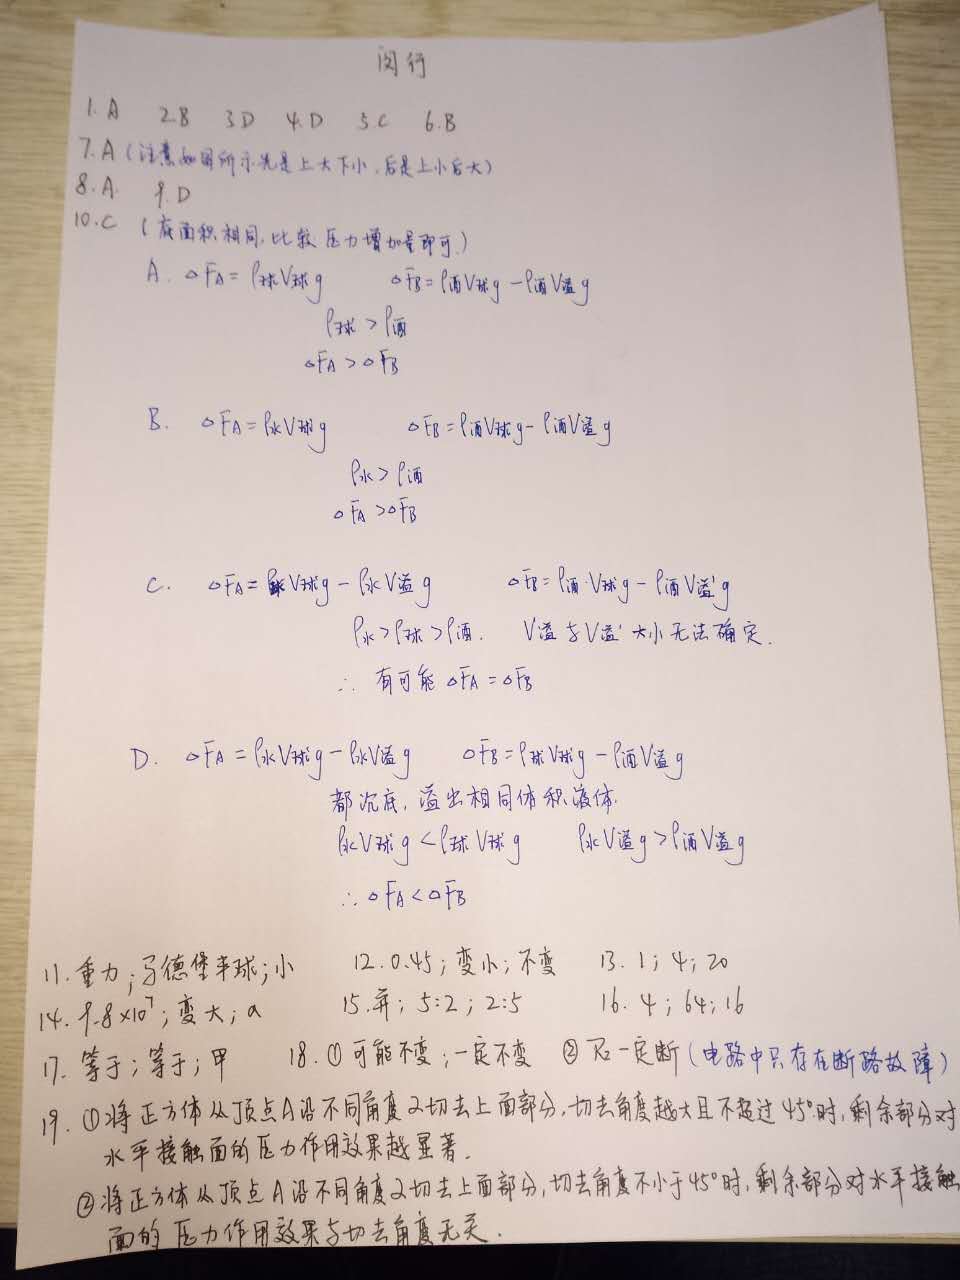 闵行
1.A 2.B 3.D 4.D 5.C 6.B
7.A(注意如图所示先是上大下小,后是上小后大)
8.A. 9.D
10.C (底面积相同,比较压力增加量即可.)
A. △FA=ρ球V球g △FB=ρ酒V球g-ρ酒V溢g
ρ球>ρ酒
△FA>△FB
B. △FA=ρ水V球g △FB=ρ酒V球g-ρ酒V溢g
ρ水>ρ酒
△FA>△FB
C. △FA=ρ球V球g-ρ水V溢g △FB=ρ酒·V球g-ρ酒V溢'g
ρ水>ρ球>ρ酒. V溢与V溢'大小无法确定.
∴ 有可能△FA=△FB
D. △FA=ρ水V球g-ρ水V溢g △FB=ρ球V球g-ρ酒V溢g
都沉底,溢出相同体积液体.
ρ水V球g<ρ球V球g ρ水V溢g>ρ酒V溢g
∴△FA<△FB
11.重力;马德堡半球;小 12.0.45;变小;不变 13.1;4;20
14.9.8×10⁷;变大;a 15.并;5:2;2:5 16.4;64;16
17.等于;等于;甲 18.①可能不变;一定不变 ②R2一定断(电路中只存在断路故障)
19.①将正方体从顶点A沿不同角度α切去上面部分,切去角度越大且不超过45°时,剩余部分对
水平接触面的压力作用效果越显著.
②将正方体从顶点A沿不同角度α切去上面部分,切去角度不小于45°时,剩余部分对水平接触
面的压力作用效果与切去角度无关.